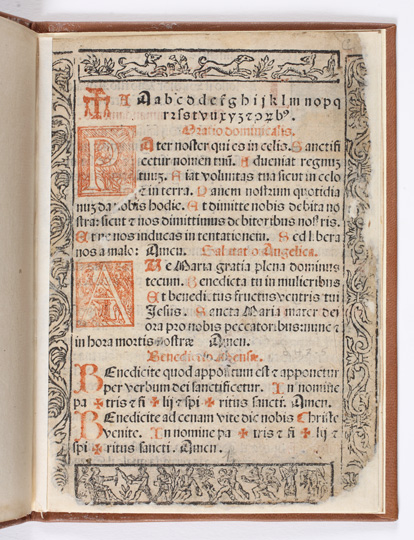 A A a b c d d e f g h i j k l m n o p q
r ꝛ s ſ t v u x y z ⁊ ꝝ bꝰ.
Oratio dominicalis.
PAter noster qui es in celis. Sanctifi
cetur nomen tuũ. Adueniat regnuz
tuuz. Fiat voluntas tua sicut in celo
⁊ in terra. Panem nostrum quotidia
nuz da nobis hodie. Et dimitte nobis debita no
stra: sicut ⁊ nos dimittimus debitoribus nostris.
Et ne nos inducas in tentationem. Sed libera
nos a malo: Amen. Salutatio Angelica.
AUe Maria gratia plena dominus
tecum. Benedicta tu in mulieribus
Et benedictus fructus ventris tui
Jesus. Sancta Maria mater dei
ora pro nobis peccatoribus: nunc ⁊
in hora mortis nostræ Amen.
Benedictio Mensæ.
BEnedicite quod appositum est ⁊ apponetur
per verbum dei sanctificetur. In nomine
pa ✠ tris ⁊ fi ✠ lij ⁊ spi ✠ ritus sancti. Amen.
BEnedicite ad cenam vite duc nobis Christe
venite. In nomine pa ✠ tris ⁊ fi ✠ lij ⁊
spi ✠ ritus sancti. Amen.